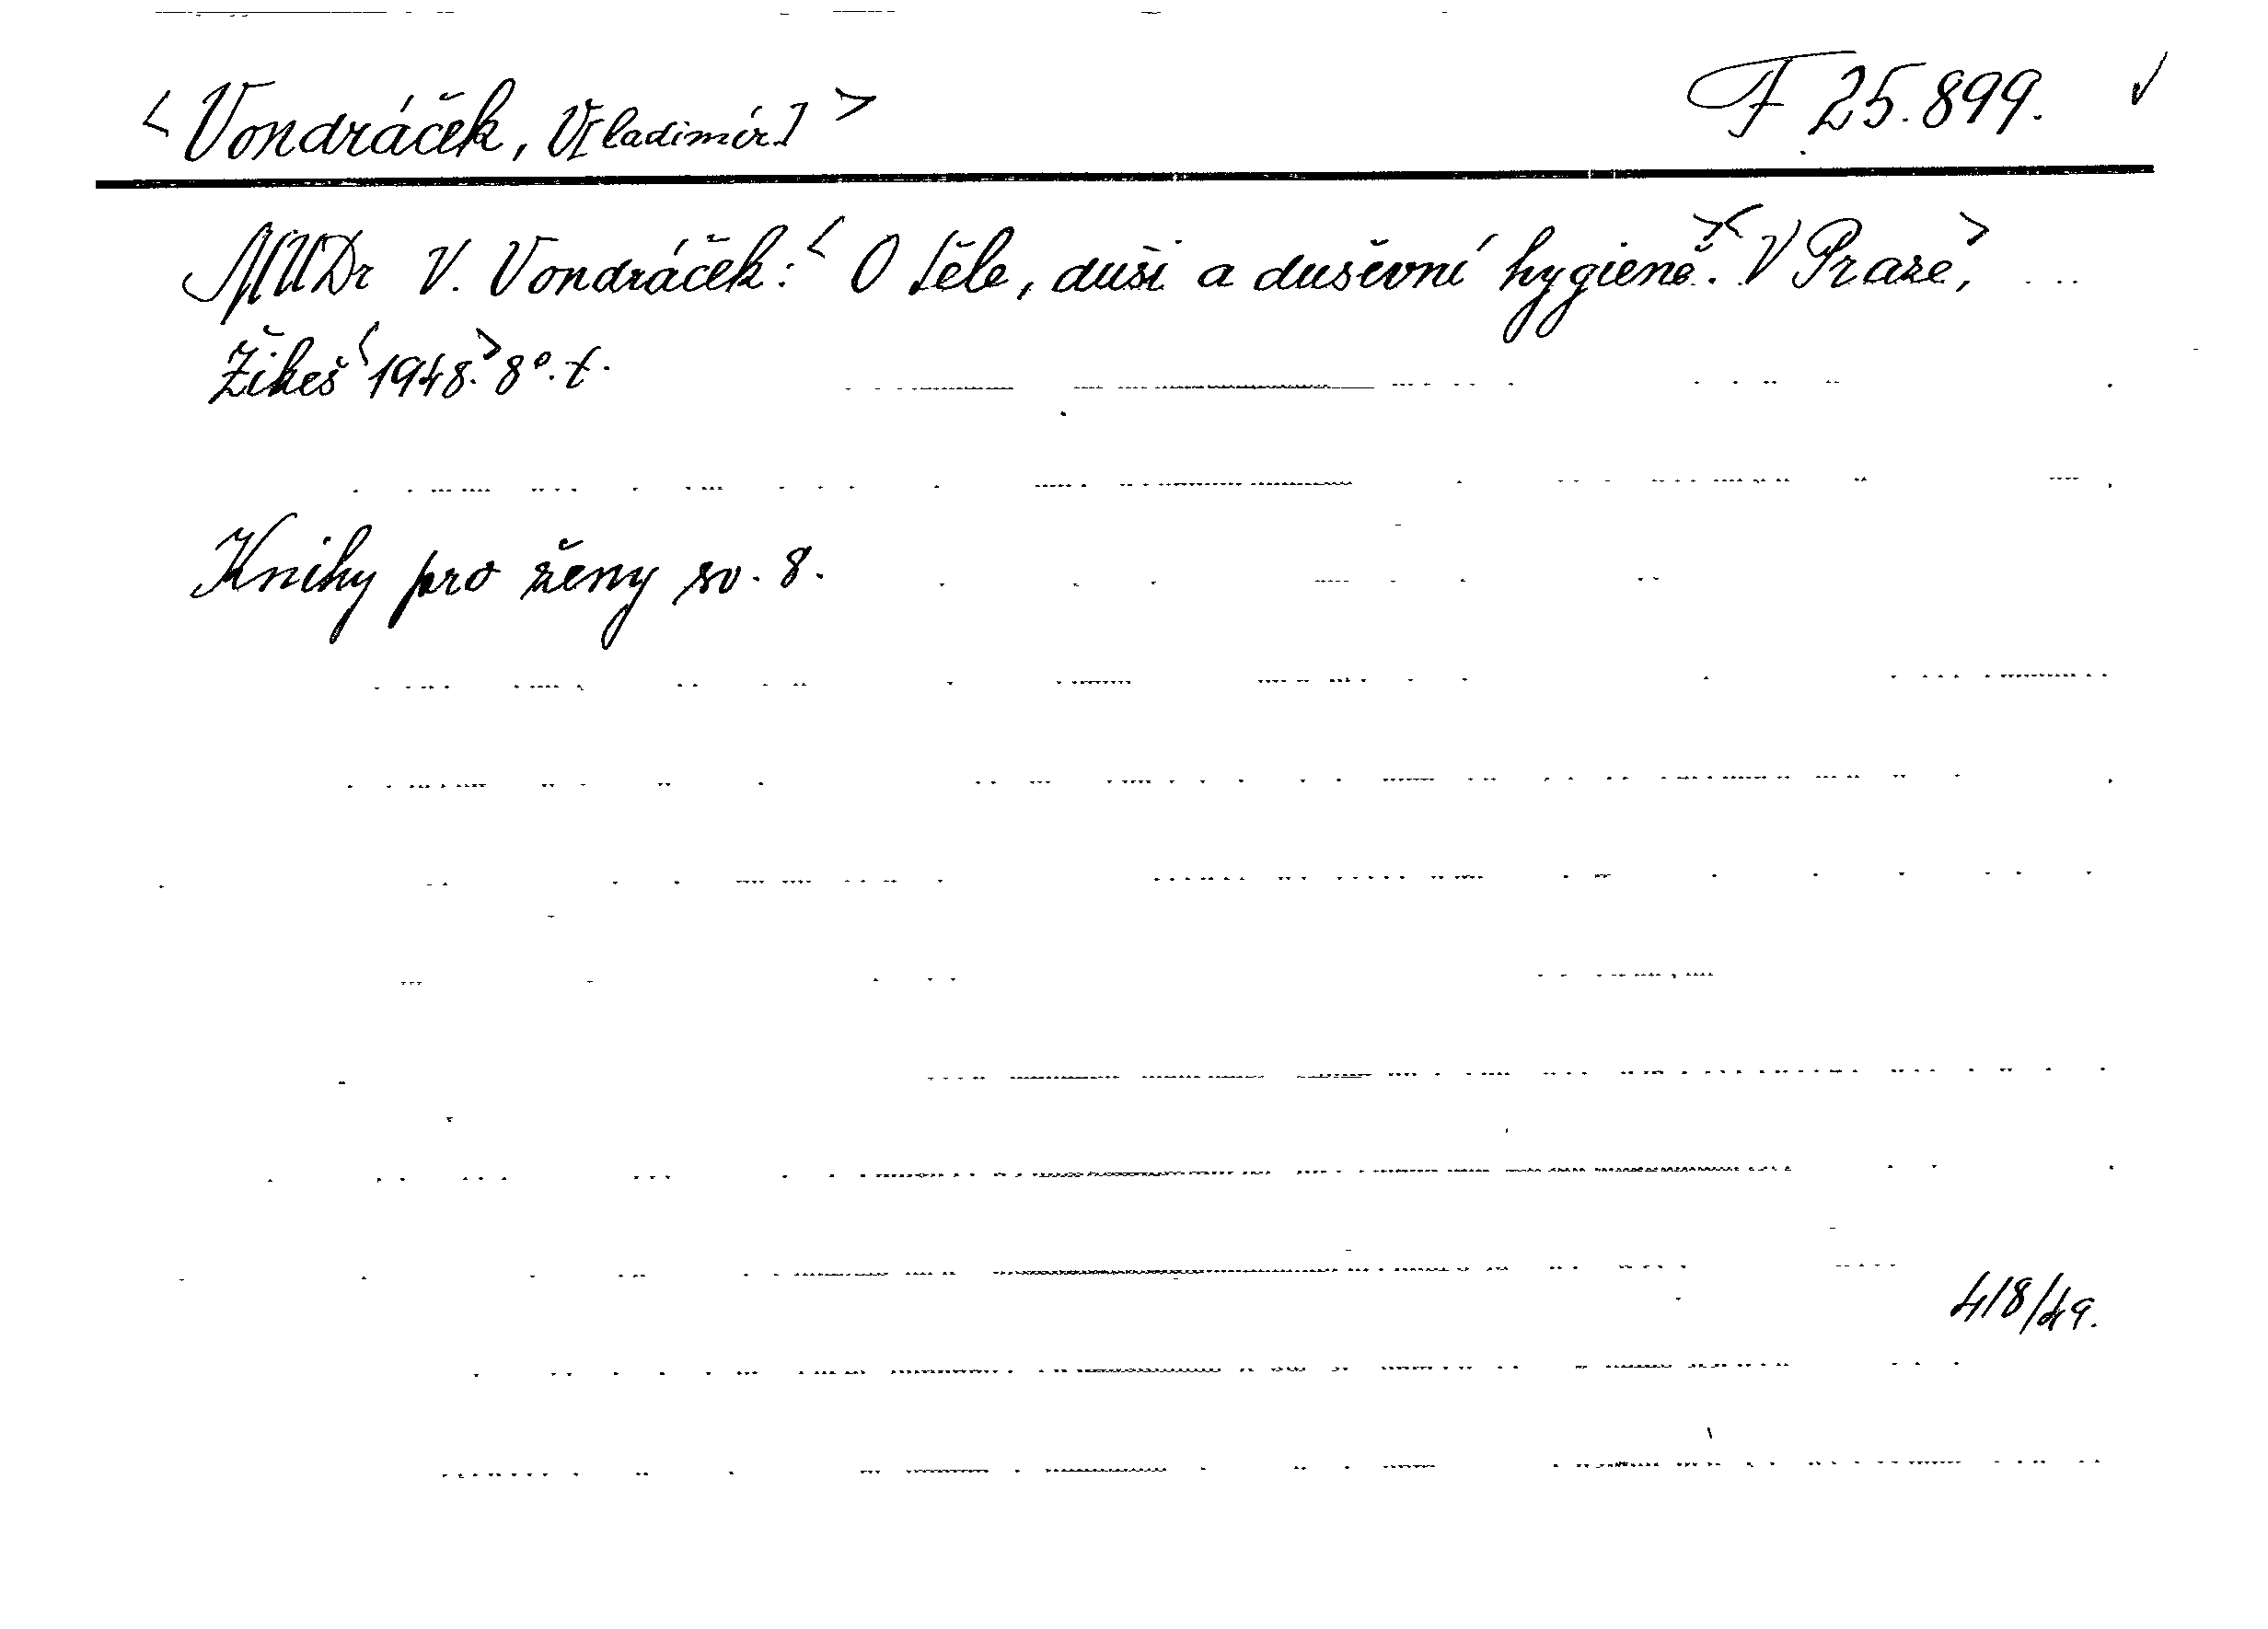 <Vondráček, V[ladimír]> F 25.899. ✓
MUDr V. Vondráček: <O těle, duši a duševní hygieně.> <V Praze,>
Žikeš <1948.> 8°. t.
Knihy pro ženy sv. 8.
418/49.